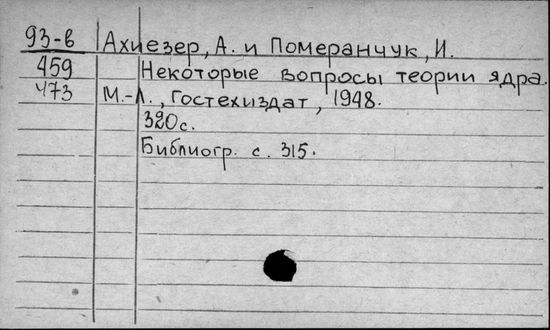 93-в Ахиезер, А. и Померанчук, И.
459 Некоторые вопросы теории ядра.
473 М.-Л., Гостехиздат, 1948.
320с.
Библиогр. с. 315.